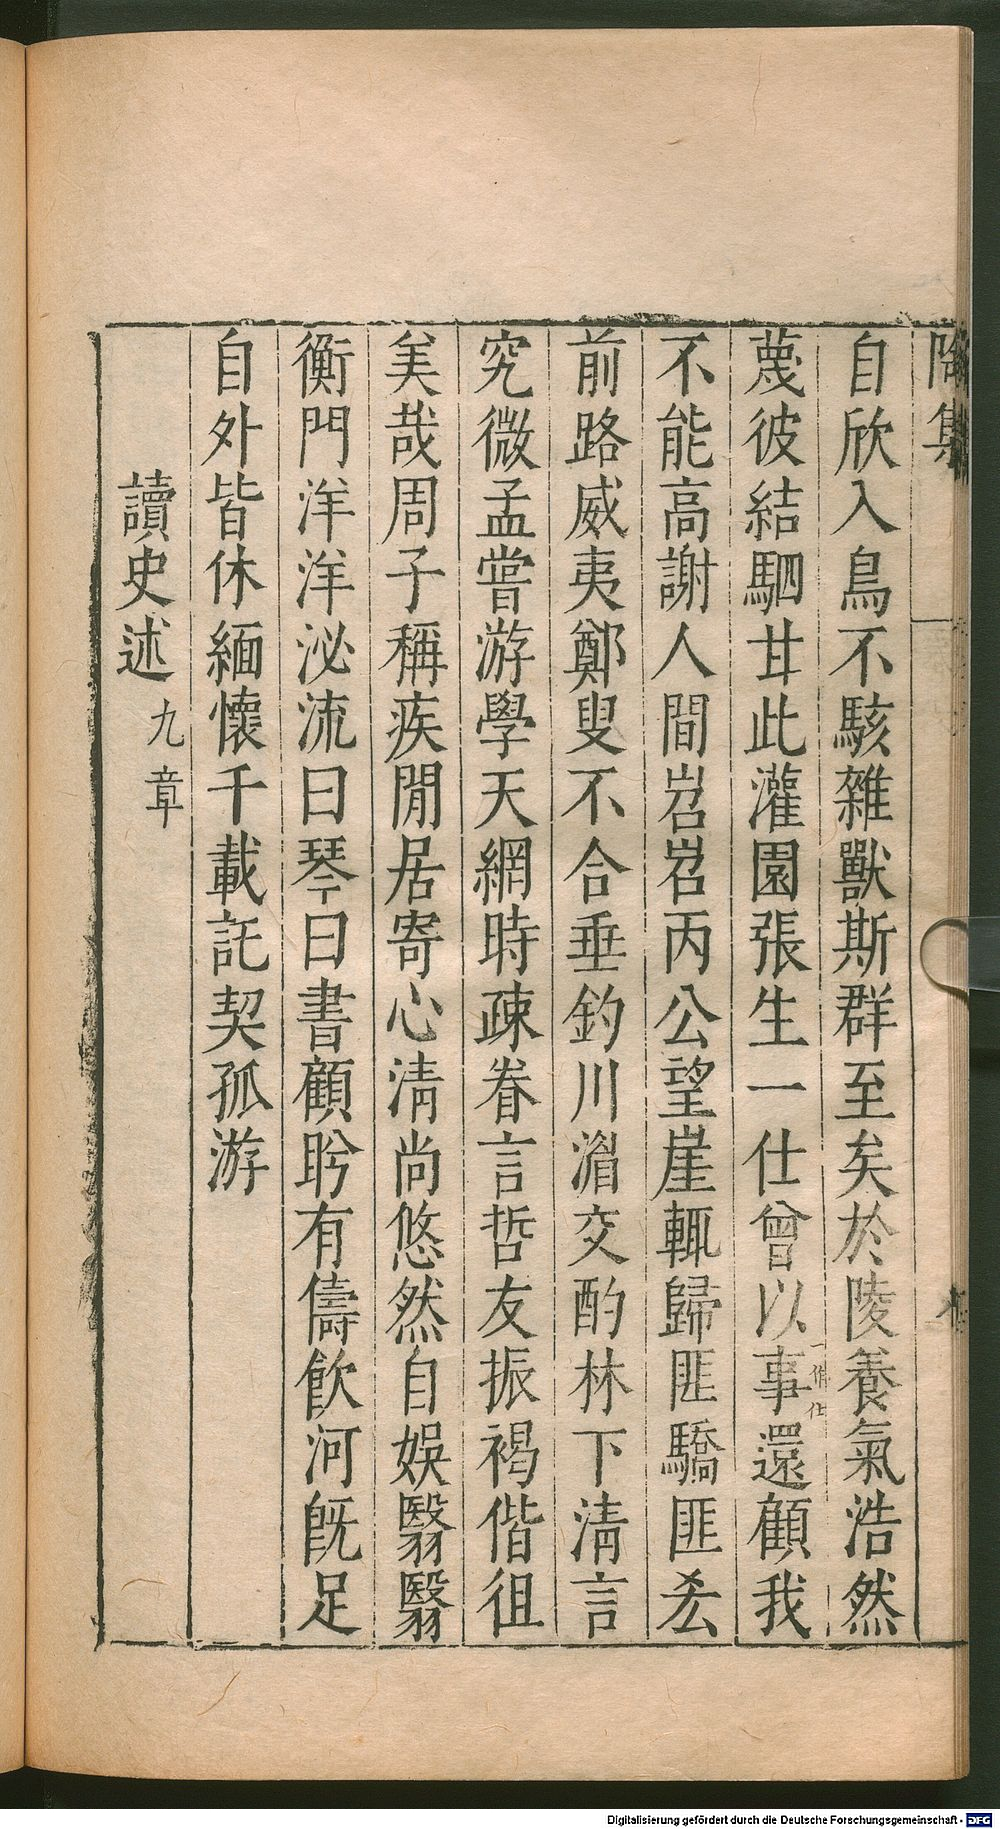 陶集
自欣入鳥不駭雜獸斯群至矣於陵養氣浩然
蔑彼結駟甘此灌園張生一仕曾以事還顧我
一作仕
不能高謝人間岧岧丙公望崖輒歸匪驕匪𠫤
前路威夷鄭叟不合垂釣川湄交酌林下清言
究微孟嘗游學天網時疎眷言哲友振褐偕徂
美哉周子稱疾閒居寄心清尚悠然自娛翳翳
衡門洋洋泌流曰琴曰書顧盻有儔飲河旣足
自外皆休緬懷千載託契孤游
讀史述九章
Digitalisierung gefördert durch die Deutsche Forschungsgemeinschaft - DFG